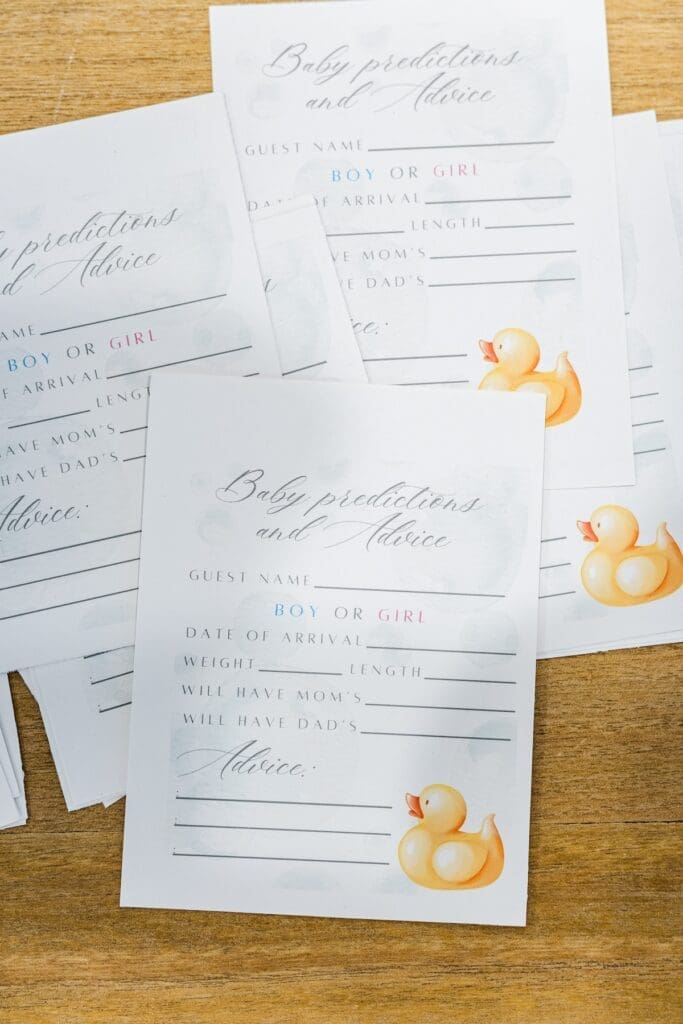 Baby predictions
and Advice
GUEST NAME
BOY OR GIRL
DATE OF ARRIVAL
LENGTH
MOM'S
DAD'S
predictions
Advice
BOY OR GIRL
ARRIVAL
MOM'S
HAVE DAD'S
Advice:
Baby predictions
and Advice
GUEST NAME
BOY OR GIRL
DATE OF ARRIVAL
WEIGHT LENGTH
WILL HAVE MOM'S
WILL HAVE DAD'S
Advice: